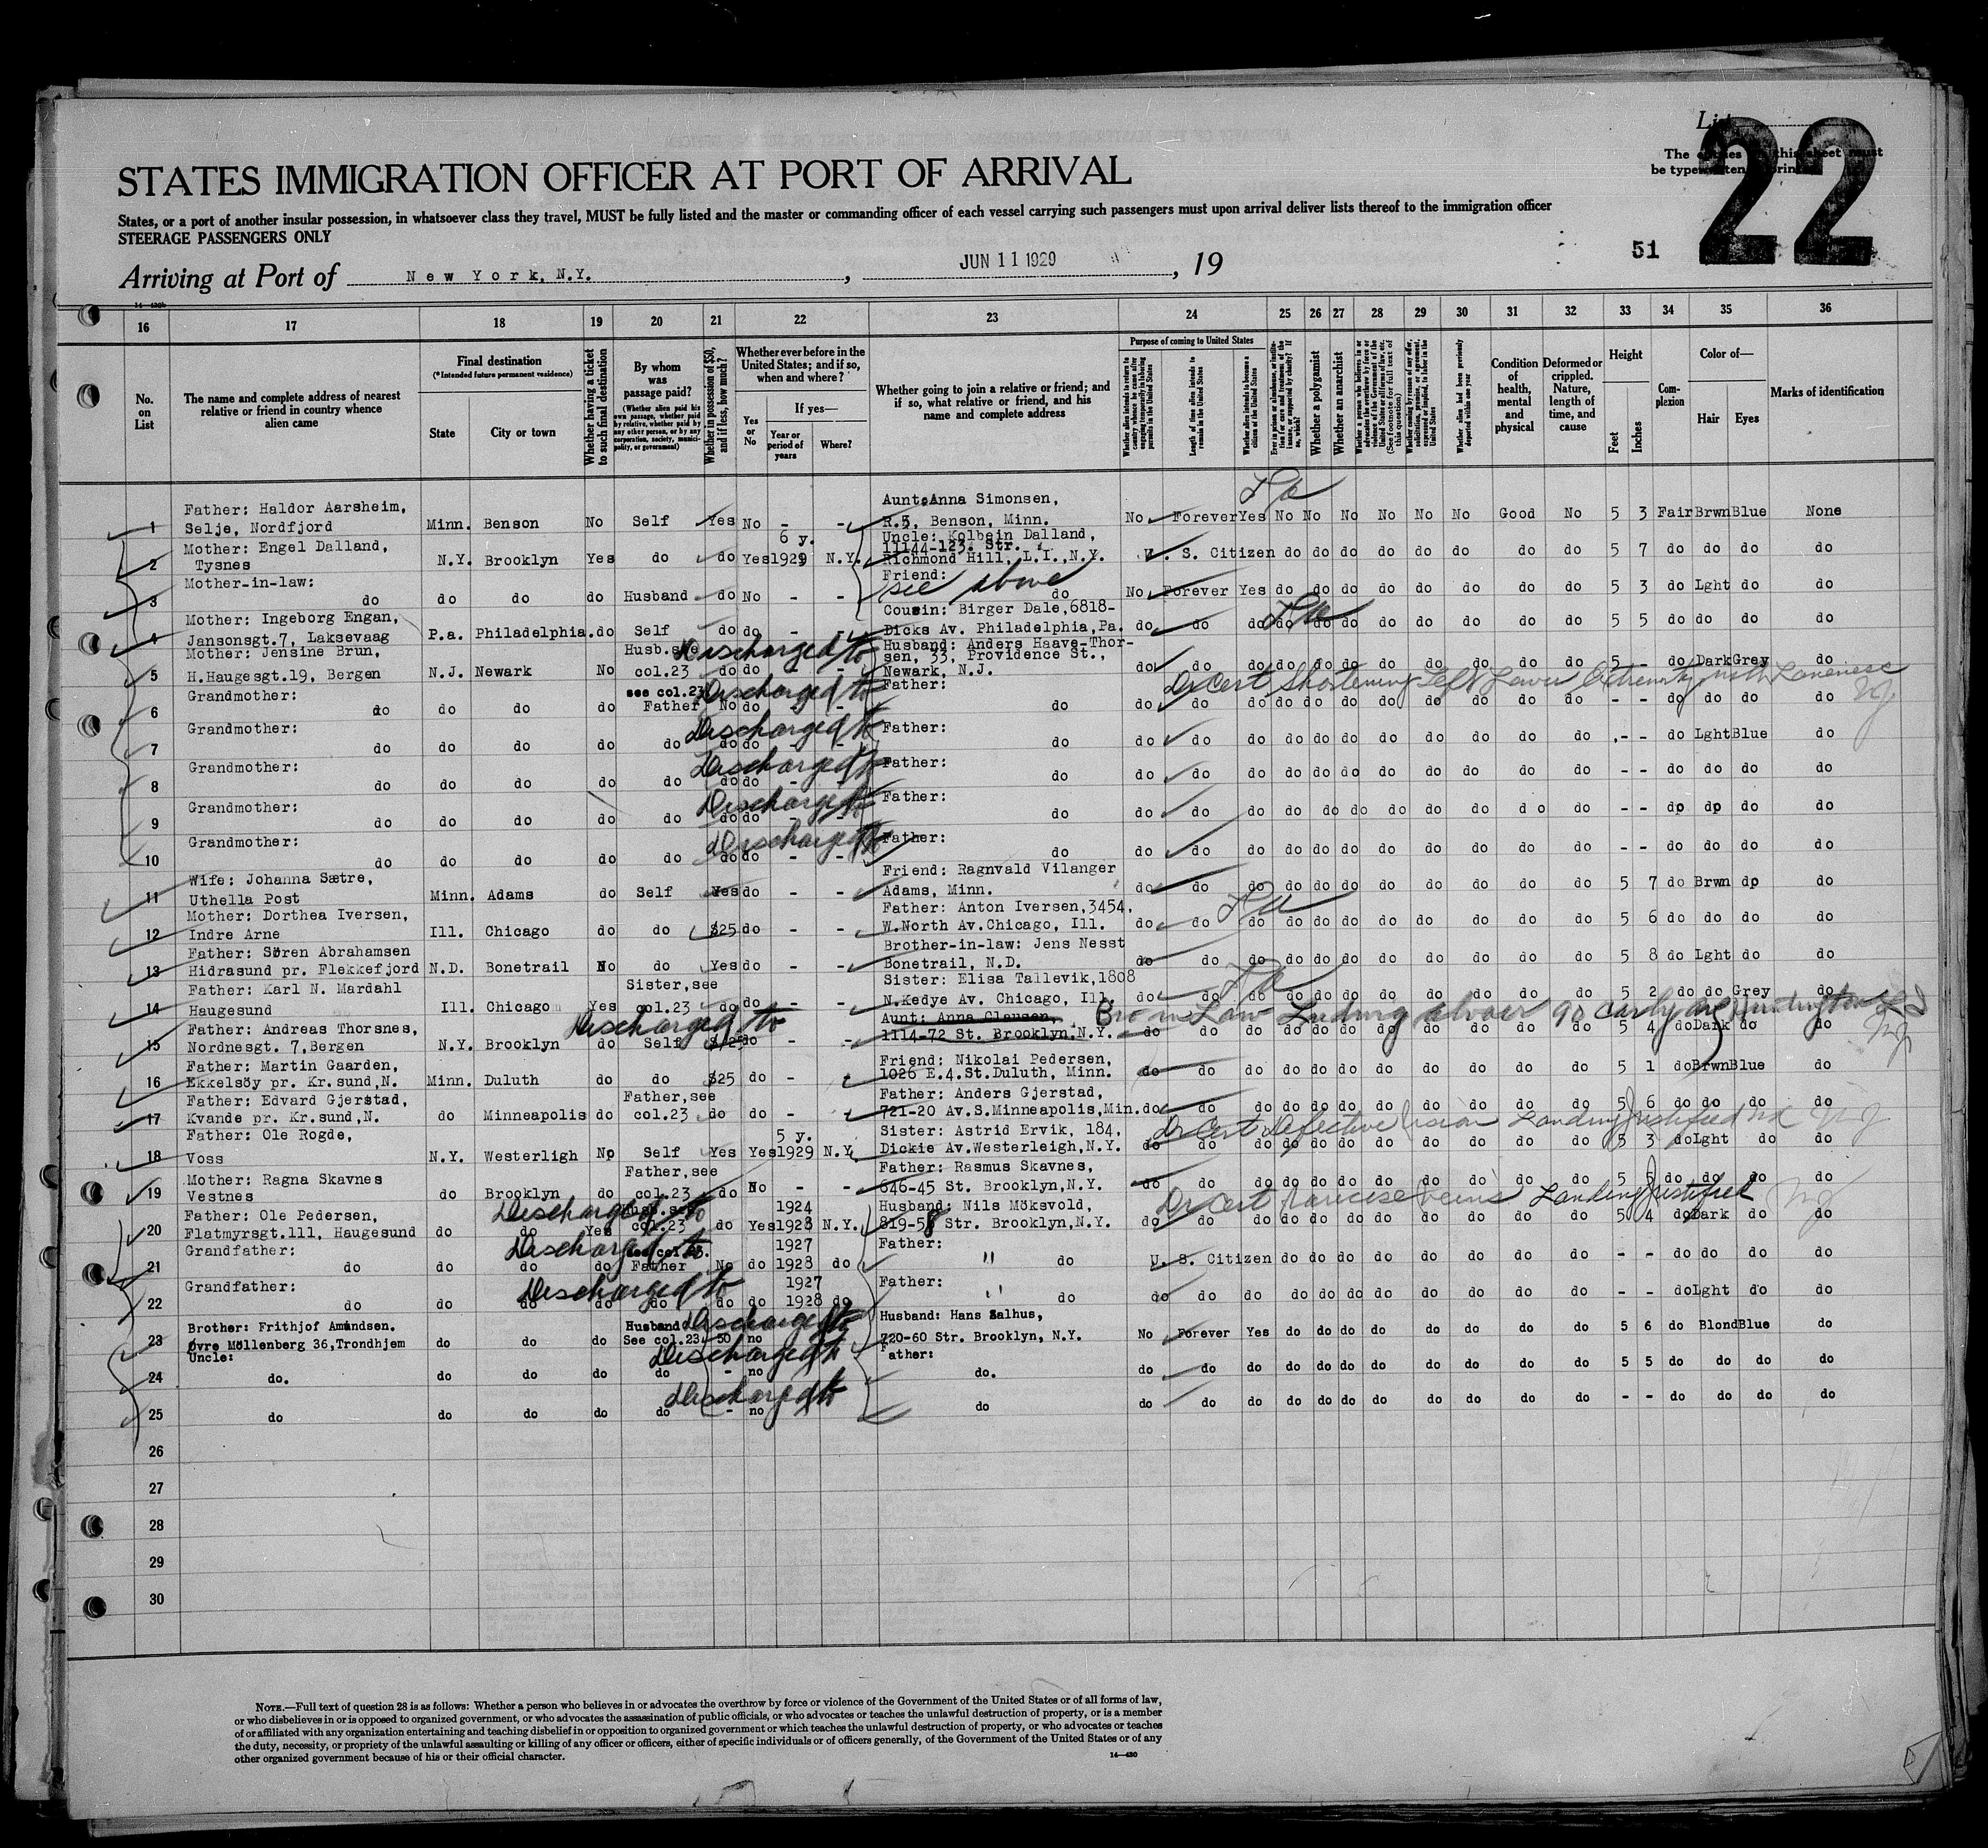 List
22
The entries on this sheet must
be typewritten or printed
STATES IMMIGRATION OFFICER AT PORT OF ARRIVAL
States, or a port of another insular possession, in whatsoever class they travel, MUST be fully listed and the master or commanding officer of each vessel carrying such passengers must upon arrival deliver lists thereof to the immigration officer
STEERAGE PASSENGERS ONLY
51
Arriving at Port of New York, N.Y. , JUN 11 1929 , 19
16 17 18 19 20 21 22 23 24 25 26 27 28 29 30 31 32 33 34 35 36
No. on List
The name and complete address of nearest relative or friend in country whence alien came
Final destination
(*Intended future permanent residence)
State
City or town
Whether having a ticket to such final destination
By whom was passage paid?
(Whether alien paid his own passage, whether paid by relative, whether paid by any other person, or by any corporation, society, municipality, or government)
Whether in possession of $50, and if less, how much?
Whether ever before in the United States; and if so, when and where?
Yes or No
If yes—
Year or period of years
Where?
Whether going to join a relative or friend; and if so, what relative or friend, and his name and complete address
Purpose of coming to United States
Length of time alien intends to remain in the United States
Whether alien intends to become a citizen of the United States
Whether a polygamist
Whether an anarchist
Condition of health, mental and physical
Deformed or crippled. Nature, length of time, and cause
Height
Feet
Inches
Complexion
Color of—
Hair
Eyes
Marks of identification
1 Father: Haldor Aarsheim, Selje, Nordfjord Minn. Benson No Self Yes No - - Aunt: Anna Simonsen, R.3, Benson, Minn. No Forever Yes No No No No No No Good No 5 3 Fair Brwn Blue None
2 Mother: Engel Dalland, Tysnes N.Y. Brooklyn Yes do do Yes 6 y. 1929 N.Y. Uncle: Kolbein Dalland, 11144-123. Str. Richmond Hill, L.I., N.Y. U. S. Citizen do do do do do do do do 5 7 do do do do
3 Mother-in-law: do do do do Husband do No - - Friend: see above do No Forever Yes do do do do do do do do 5 3 do Lght do do
4 Mother: Ingeborg Engan, Jansonsgt.7, Laksevaag P.a. Philadelphia. do Self do do - - Cousin: Birger Dale, 6818- Dicks Av. Philadelphia, Pa. do do do do do do do do do do do 5 5 do do do do
5 Mother: Jensine Brun, H.Haugesgt.19, Bergen N.J. Newark No Husb.see col.23 do do Discharged to - Husband: Anders Haave-Thorsen, 33, Providence St., Newark, N.J. do do do do do do do do do do do 5 - do Dark Grey do
Dr Cert Shortening Left Lower Extremity with Lameness
6 Grandmother: do do do do see col.23 Father No do Discharged to Father: do do do do do do do do do do do do - - do do do do
7 Grandmother: do do do do do do do Discharged to Father: do do do do do do do do do do do do - - do Lght Blue do
8 Grandmother: do do do do do do do Discharged to Father: do do do do do do do do do do do do - - do do do do
9 Grandmother: do do do do do do do Discharged to Father: do do do do do do do do do do do do - - do do do do
10 Grandmother: do do do do do do do Discharged to Father: do do do do do do do do do do do do - - do do do do
11 Wife: Johanna Sætre, Uthella Post Minn. Adams do Self Yes do - - Friend: Ragnvald Vilanger Adams, Minn. do do do do do do do do do do do 5 7 do Brwn do do
12 Mother: Dorthea Iversen, Indre Arne Ill. Chicago do do $25 do - - Father: Anton Iversen, 3454, W.North Av. Chicago, Ill. do do do do do do do do do do do 5 6 do do do do
13 Father: Sören Abrahamsen Hidrasund pr. Flekkefjord N.D. Bonetrail No do Yes do - - Brother-in-law: Jens Nesst Bonetrail, N.D. do do do do do do do do do do do 5 8 do Lght do do
14 Father: Karl N. Mardahl Haugesund Ill. Chicago Yes Sister, see col.23 do do - - Sister: Elisa Tallevik, 1808 N.Kedye Av. Chicago, Ill. do do do do do do do do do do do 5 2 do do Grey do
15 Father: Andreas Thorsnes, Nordnesgt. 7, Bergen N.Y. Brooklyn do Self do - - Discharged to Aunt: Anna Clausen, 1114-72 St. Brooklyn, N.Y. do do do do do do do do do do do 5 4 do Dark do do
Bro in Law
16 Father: Martin Gaarden, Ekkelsöy pr. Kr.sund, N. Minn. Duluth do do $25 do - Friend: Nikolai Pedersen, 1026 E.4.St. Duluth, Minn. do do do do do do do do do do do 5 1 do Brwn Blue do
17 Father: Edvard Gjerstad, Kvande pr. Kr.sund, N. do Minneapolis do Father, see col.23 do do - Father: Anders Gjerstad, 721-20 Av.S. Minneapolis, Min. do do do do do do do do do do do 5 6 do do do do
Dr Cert Defective Vision Landing justified
18 Father: Ole Rogde, Voss N.Y. Westerligh No Self Yes Yes 5 y. 1929 N.Y. Sister: Astrid Ervik, 184, Dickie Av. Westerleigh, N.Y. do do do do do do do do do do do 5 3 do Lght do do
19 Mother: Ragna Skavnes Vestnes do Brooklyn do Father, see col.23 do No - - Father: Rasmus Skavnes, 646-45 St. Brooklyn, N.Y. do do do do do do do do do do do 5 do do do do
Dr Cert Varicose veins Landing justified
20 Father: Ole Pedersen, Flatmyrsgt.111, Haugesund do do Yes Husb.see col.23 do Yes 1924 1928 N.Y. Discharged to Husband: Nils Möksvold, 819-58 Str. Brooklyn, N.Y. do do do do do do do do do do do 5 4 do Dark do do
21 Grandfather: do do do do see col.23. Father No do 1927 1928 do Discharged to Father: " do U. S. Citizen do do do do do do do do - - do do do do
22 Grandfather: do do do do do do do 1927 1928 do Discharged to Father: " do do do do do do do do do do do do - - do Lght do do
23 Brother: Frithjof Amundsen. Øvre Möllenberg 36, Trondhjem do do do Husband See col.23 50 no Discharged to Husband: Hans Zalhus, 720-60 Str. Brooklyn, N.Y. No Forever Yes do do do do do do do do 5 6 do Blond Blue do
24 Uncle: do. do do do do - no Discharged to Father: do. do do do do do do do do do do do 5 5 do do do do
25 do do do do do - no Discharged to do do do do do do do do do do do do - - do do do do
26
27
28
29
30
NOTE.—Full text of question 28 is as follows: Whether a person who believes in or advocates the overthrow by force or violence of the Government of the United States or of all forms of law,
or who disbelieves in or is opposed to organized government, or who advocates the assassination of public officials, or who advocates or teaches the unlawful destruction of property, or is a member
of or affiliated with any organization entertaining and teaching disbelief in or opposition to organized government or which teaches the unlawful destruction of property, or who advocates or teaches
the duty, necessity, or propriety of the unlawful assaulting or killing of any officer or officers, either of specific individuals or of officers generally, of the Government of the United States or of any
other organized government because of his or their official character.
14—430